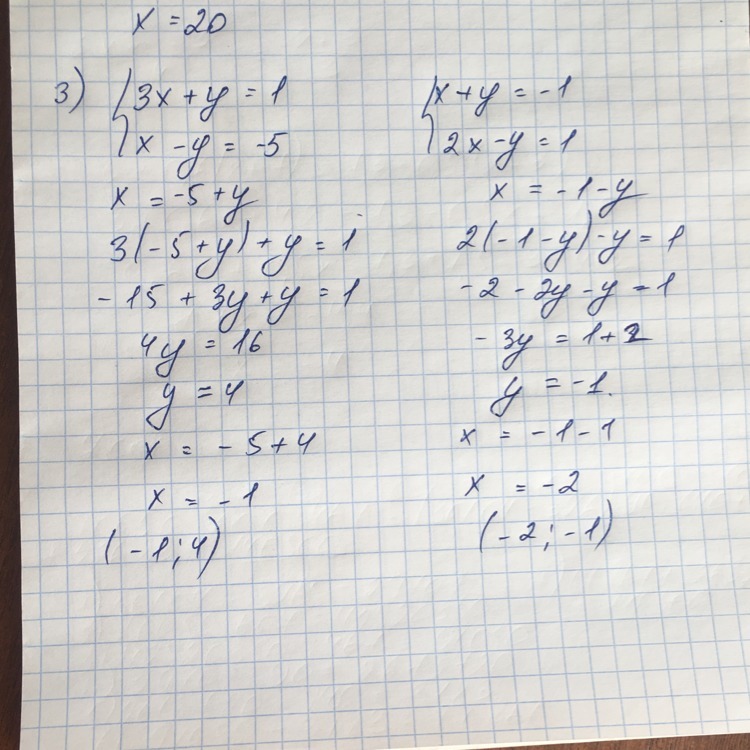 x = 20
3) { 3x + y = 1
x - y = -5
x = -5 + y
3(-5 + y) + y = 1
-15 + 3y + y = 1
4y = 16
y = 4
x = -5 + 4
x = -1
(-1; 4)
{ x + y = -1
2x - y = 1
x = -1 - y
2(-1 - y) - y = 1
-2 - 2y - y = 1
-3y = 1 + 2
y = -1.
x = -1 - 1
x = -2
(-2; -1)